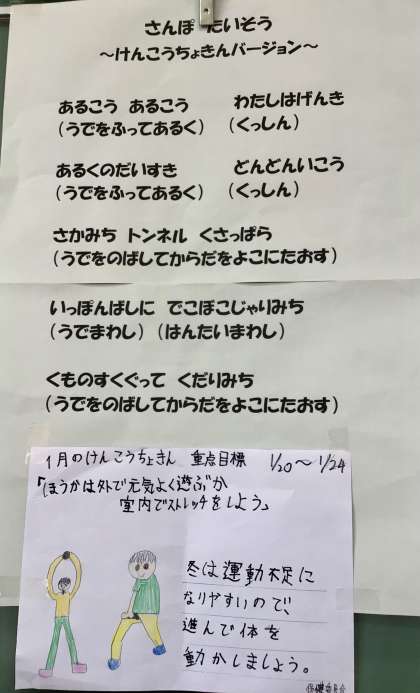 さんぽ たいそう
～けんこうちょきんバージョン～
あるこう あるこう わたしはげんき
（うでをふってあるく）（くっしん）
あるくのだいすき どんどんいこう
（うでをふってあるく）（くっしん）
さかみち トンネル くさっぱら
（うでをのばしてからだをよこにたおす）
いっぽんばしに でこぼこじゃりみち
（うでまわし）（はんたいまわし）
くものすくぐって くだりみち
（うでをのばしてからだをよこにたおす）
1月のけんこうちょきん 重点目標 1/20～1/24
「ほうかは外で元気よく遊ぶか
室内でストレッチをしよう」
冬は運動不足に
なりやすいので、
進んで体を
動かしましょう。
保健委員会